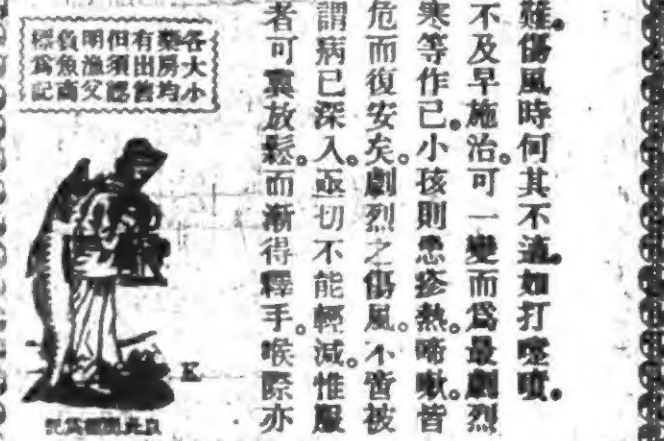 難。傷風時何其不適。如打嚏噴。
不及早施治。可一變而爲最劇烈
寒等作已。小孩則患疹熱。啼嗽。皆
危而復安矣。劇烈之傷風。不啻被
謂病已深入。亟切不能輕減。惟服
者可冀放鬆。而漸得釋手。喉際亦
各大小
藥房均
有出售
但須認
明漁父
負魚商
標爲記
K